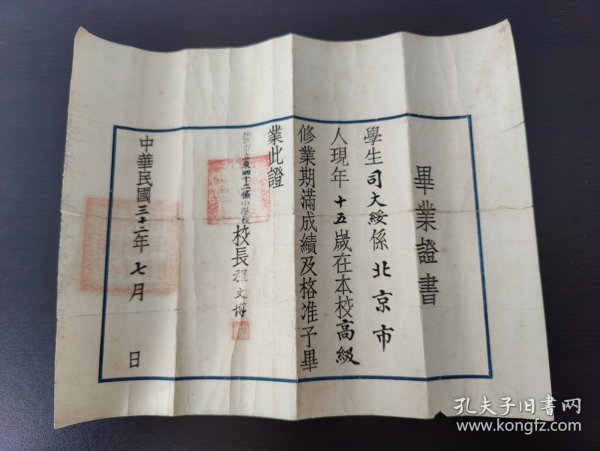 畢業證書
學生司大綏係北京市
人現年十五歲在本校高級
修業期滿成績及格准予畢
業此證
小學校校長程文博
中華民國三十二年七月 日
孔夫子旧书网
www.kongfz.com